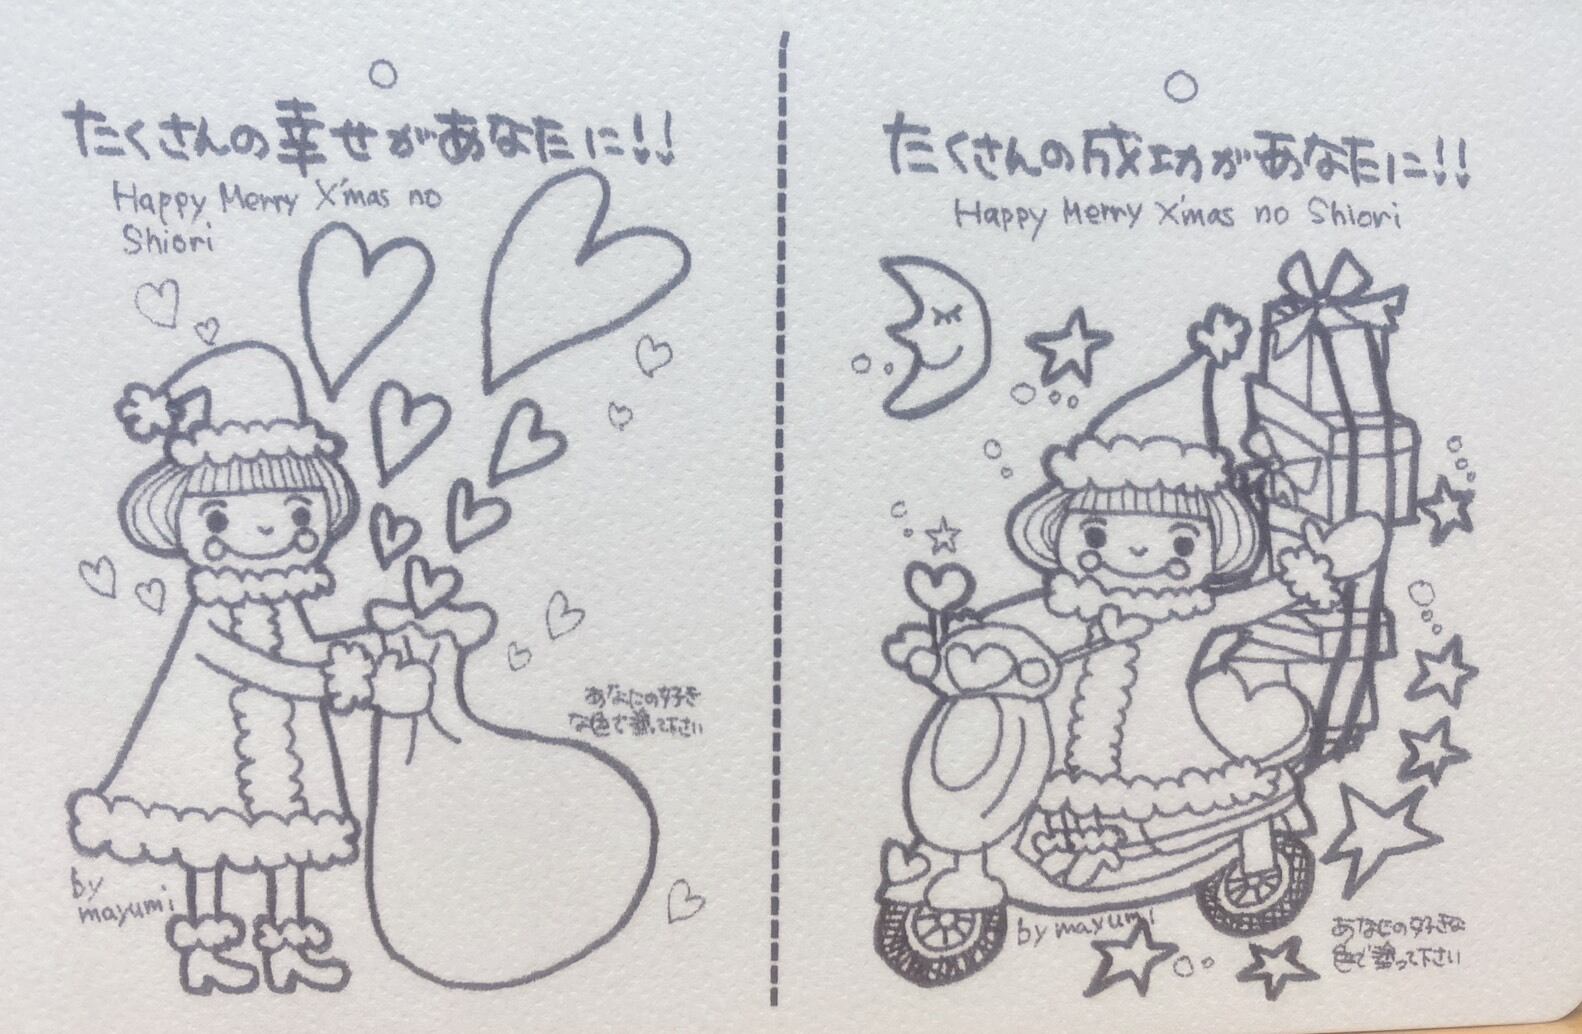 たくさんの幸せがあなたに!!
Happy Merry X'mas no
Shiori
あなたの好き
な色で塗って下さい
by
mayumi
たくさんの成功があなたに!!
Happy Merry X'mas no Shiori
by mayumi
あなたの好きな
色で塗って下さい